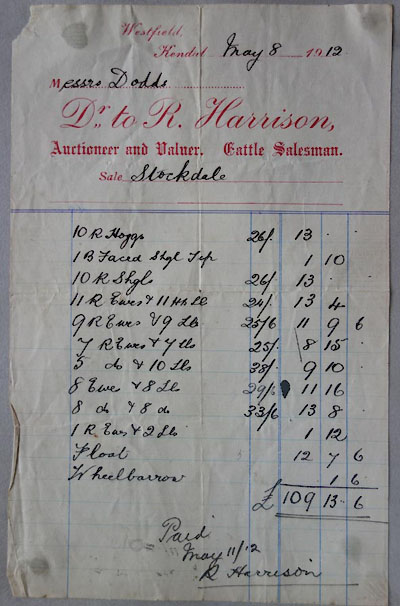 Westfield,
Kendal May 8 1912
Messrs Dodds
Dr. to R. Harrison,
Auctioneer and Valuer. Cattle Salesman.
Sale Stockdale
10 R Hoggs 26/. 13 . .
1 B Faced Shgl Tup 1 10
10 R Shgls 26/. 13 .
11 R Ewes & 11 Lb 24/. 13 4
9 R Ewes & 9 Lbs 25/6 11 9 6
7 R Ewes & 7 Lbs 25/. 8 15
5 do & 10 Lbs 38/. 9 10
8 Ewes & 8 Lbs 29/6 11 16
8 do & 8 do 33/6 13 8
1 R Ewe & 2 Lbs 1 12
Float 12 7 6
Wheelbarrow 1 6
£ 109 13 6
Paid
May 11/12
R Harrison